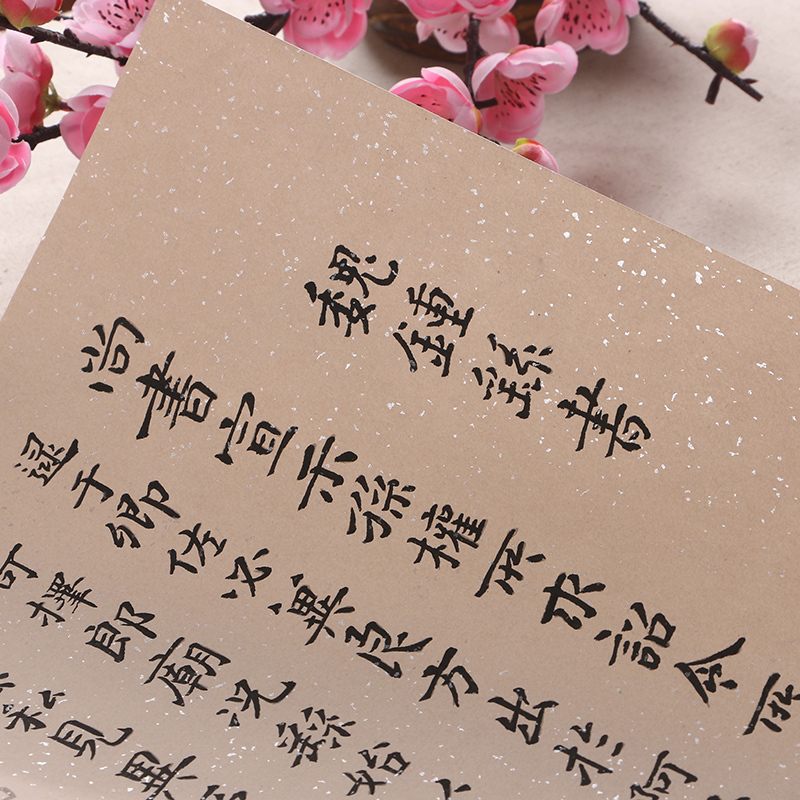 魏鍾繇書
尚書宣示孫權所求詔令所
逮于卿佐必冀良方出於阿
可擇郎廟況繇始
私見異